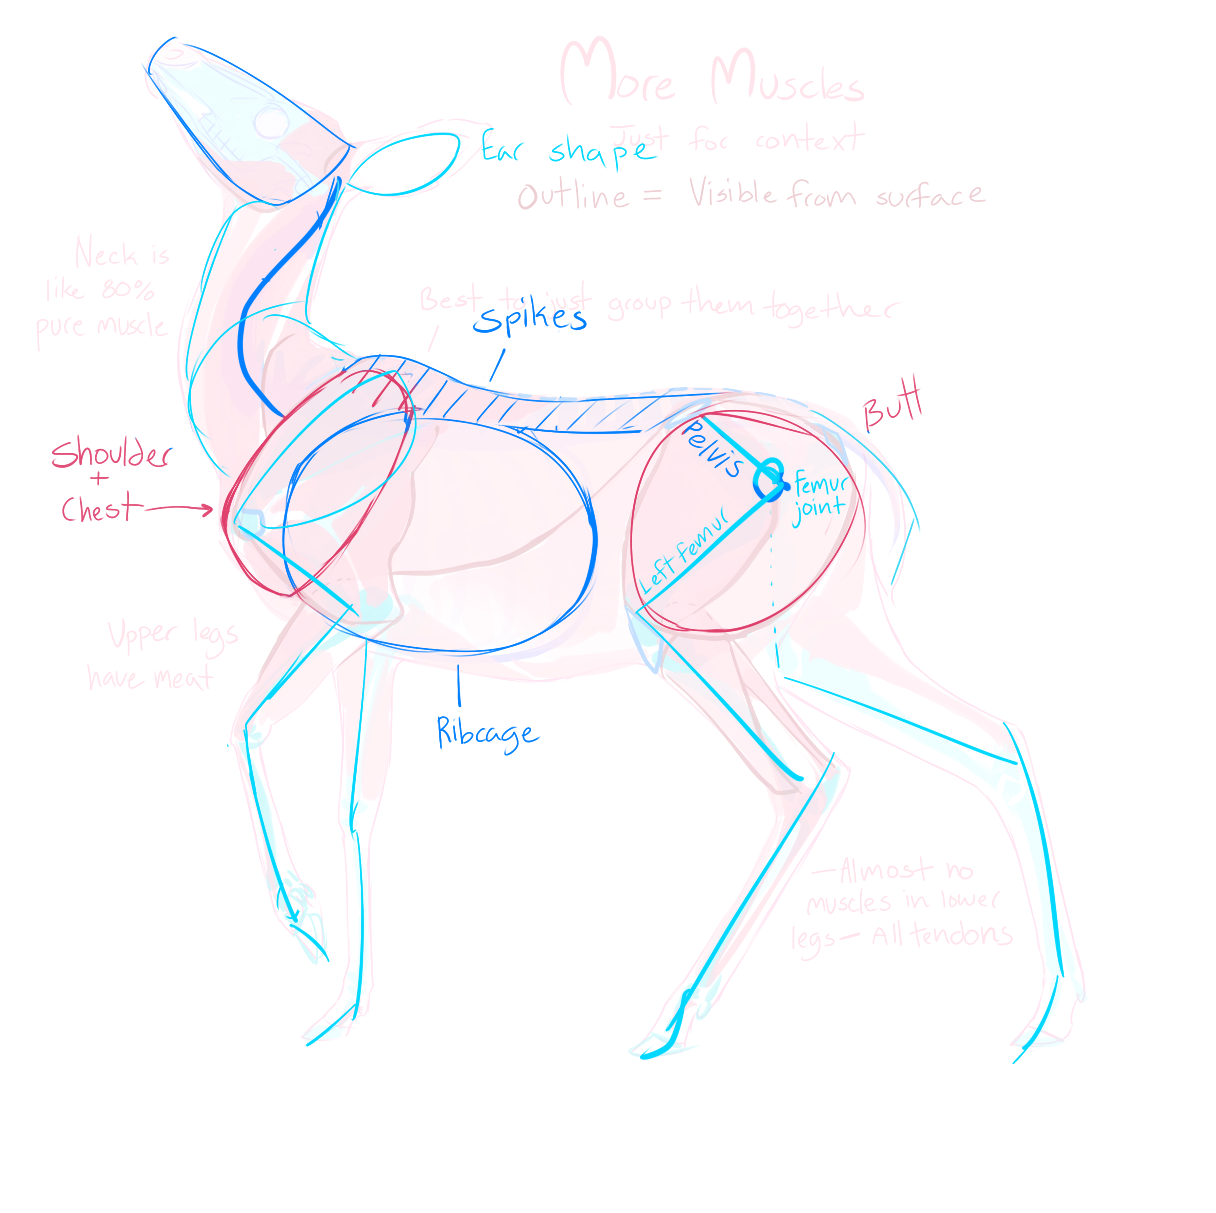 More Muscles
Just for context
Ear shape
Outline = Visible from surface
Neck is
like 80%
pure muscle
Best to just group them together
Spikes
Butt
Shoulder
+
Chest
Pelvis
Femur
joint
Left Femur
Upper legs
have meat
Ribcage
— Almost no
muscles in lower
legs — All tendons